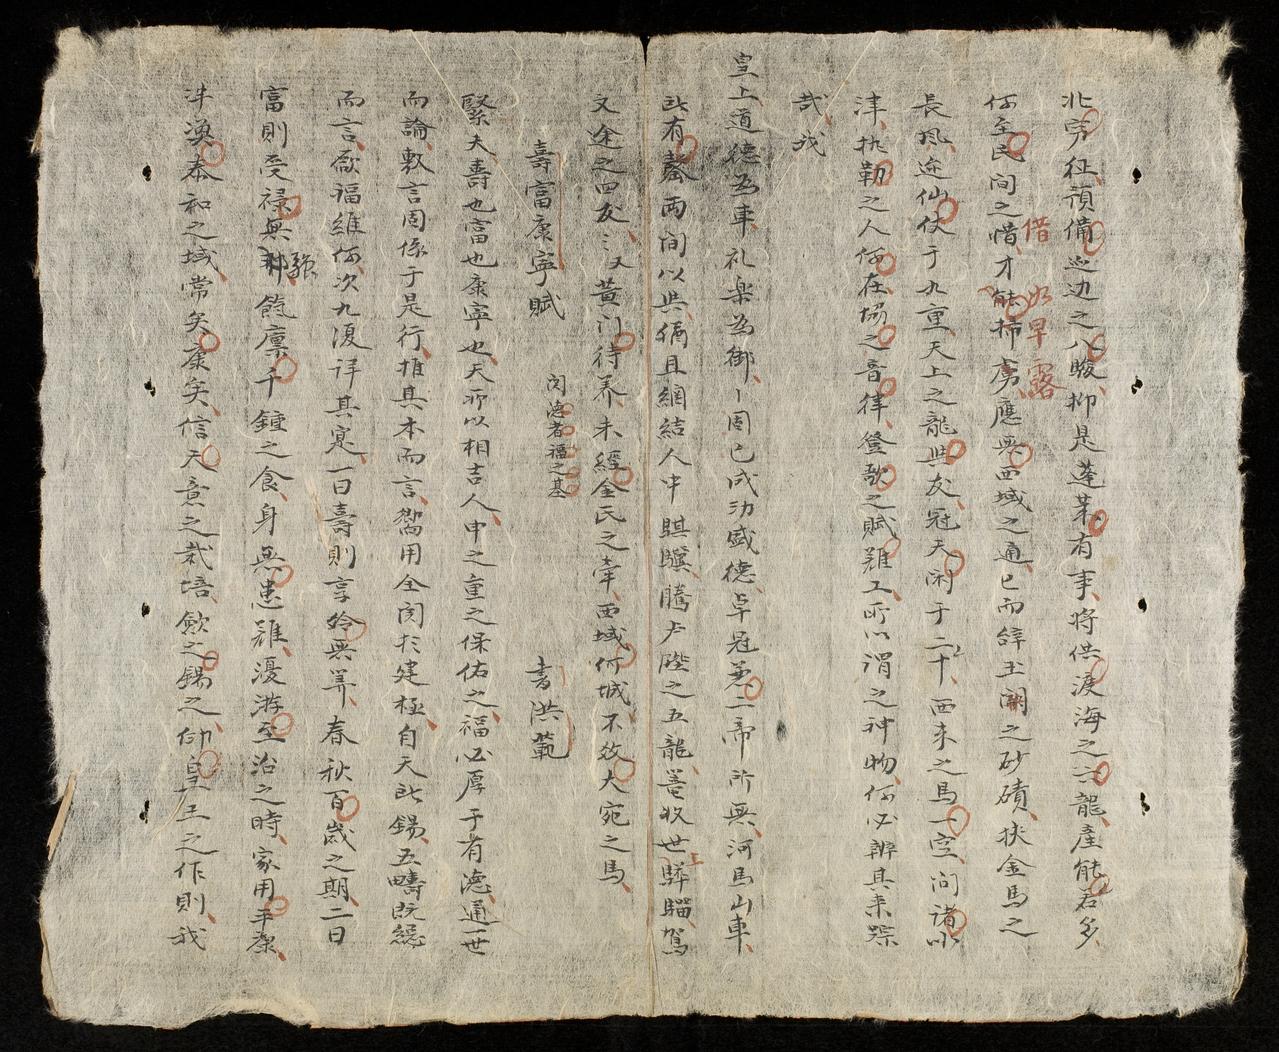 北旁征,預備巡边之八駿,抑是蓬萊有事,將供渡海之六龍,產能君多,
何至民间之惜,才能
借 如早露
虏,應與西域之通,已而辞玉關之砂磧,挾金馬之
長風,迹仙仗于九重,天上之龍與友,冠天闲于二十,西来之馬一空,问諸水
津,执勒之人何在,協之音律,登歌之賦難工,所以谓之神物,何必辨其来踪
哉,哉
皇上道德為車,礼楽為御,固已成功盛德,卓冠帝所無河馬山車,
此有兩间以與俩且網結人中騏驥,騰户陛之五龍,善收世上騂騮,駕
文途之四友,又黄门待养,未經金氏之牵,西域何城,不效大宛之馬,
壽富康寧賦 闵德者福之基 書洪範
緊夫壽也富也康寧也,天所以相吉人,申之重之保佑之,福必厚于有德,通一世
而論,敷言周係于是行,推其本而言,嚮用全闵於建極,自天此錫,五疇既總
而言,歛福維何,次九復详其寔,一曰壽則享齡無筭,春秋百歲之期,二曰
富則受禄無疆餼廩千鍾之食,身無患難,優游至治之時,家用平康,
泮渙泰和之域,常矣,康矣,信天意之栽培,歛之錫之,仰皇王之作則,我